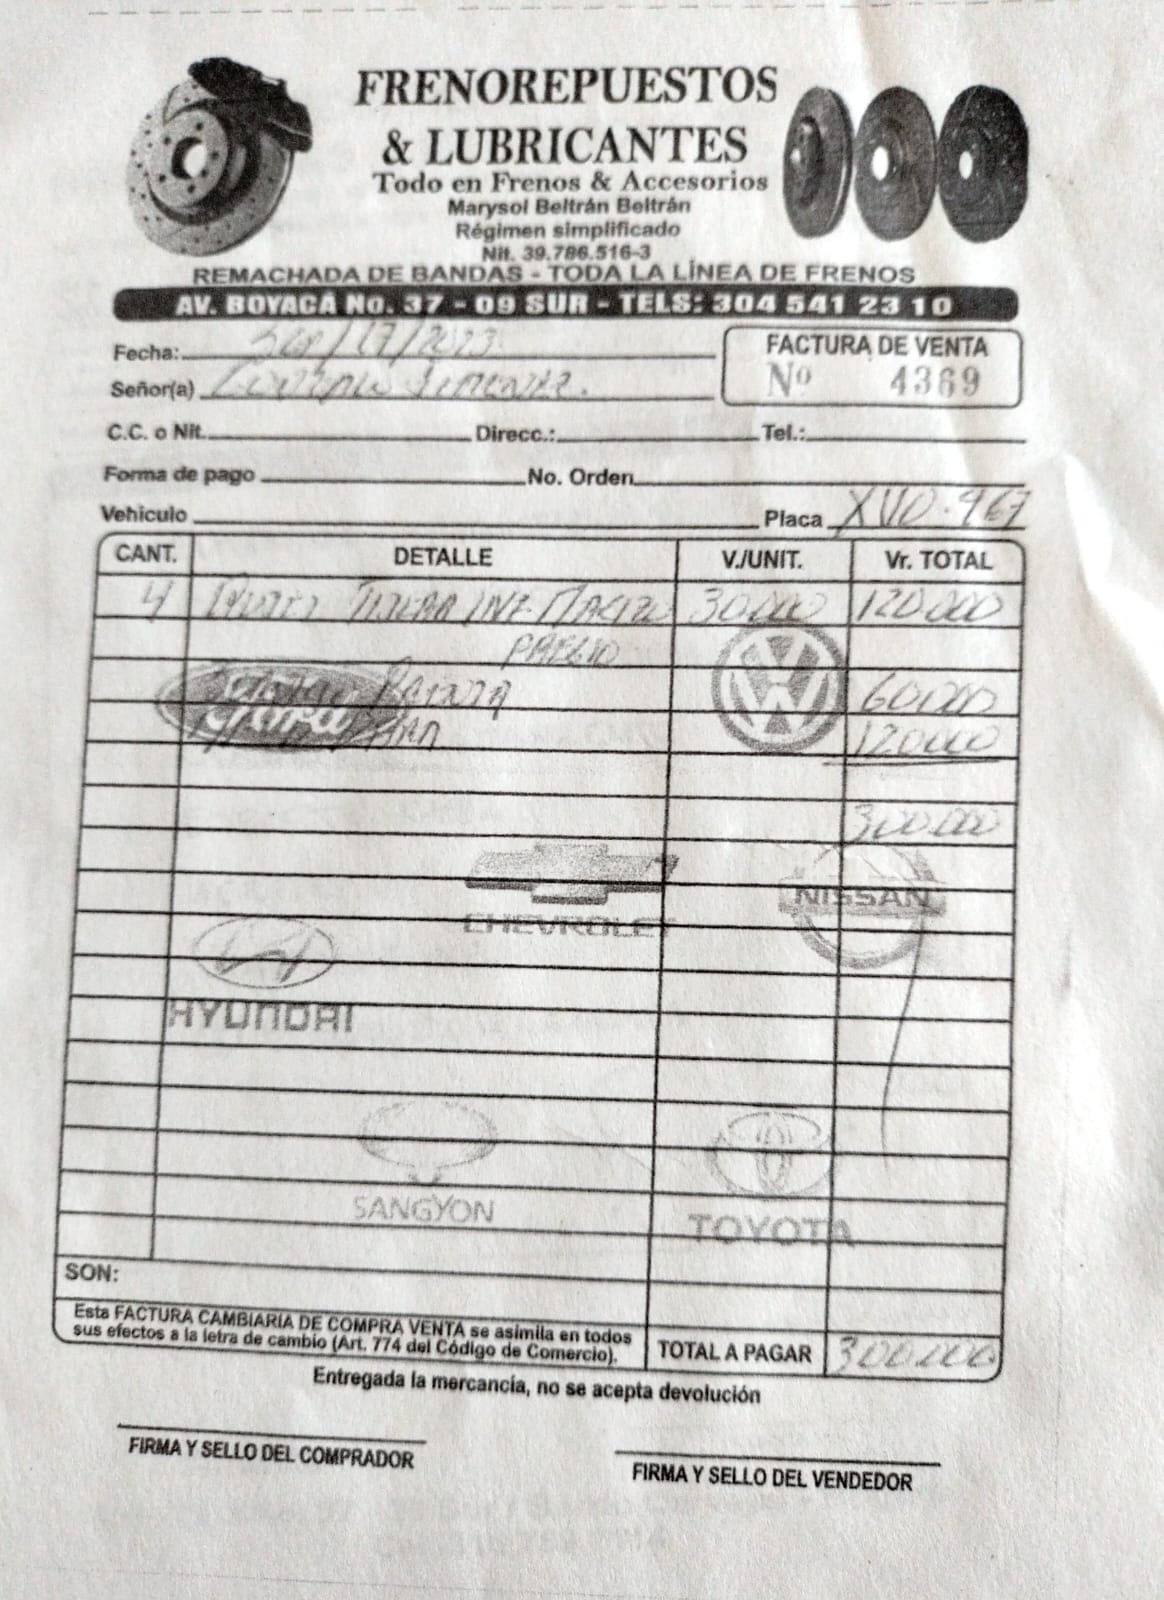 FRENOREPUESTOS
& LUBRICANTES
Todo en Frenos & Accesorios
Marysol Beltrán Beltrán
Régimen simplificado
Nit. 39.786.516-3
REMACHADA DE BANDAS - TODA LA LÍNEA DE FRENOS
AV. BOYACÁ No. 37 - 09 SUR - TELS: 304 541 23 10
Fecha: Sep/17/2023
FACTURA DE VENTA
Nº 4369
Señor(a)
C.C. o Nit. Direcc.: Tel.:
Forma de pago No. Orden
Vehiculo Placa XVO-967
CANT. DETALLE V./UNIT. Vr. TOTAL
4 TIJERA INF 30.000 120.000
Ford
60.000
120.000
300.000
CHEVROLET
NISSAN
HYUNDAI
SANGYON
TOYOTA
SON:
Esta FACTURA CAMBIARIA DE COMPRA VENTA se asimila en todos
sus efectos a la letra de cambio (Art. 774 del Código de Comercio).
TOTAL A PAGAR 300.000
Entregada la mercancía, no se acepta devolución
FIRMA Y SELLO DEL COMPRADOR
FIRMA Y SELLO DEL VENDEDOR